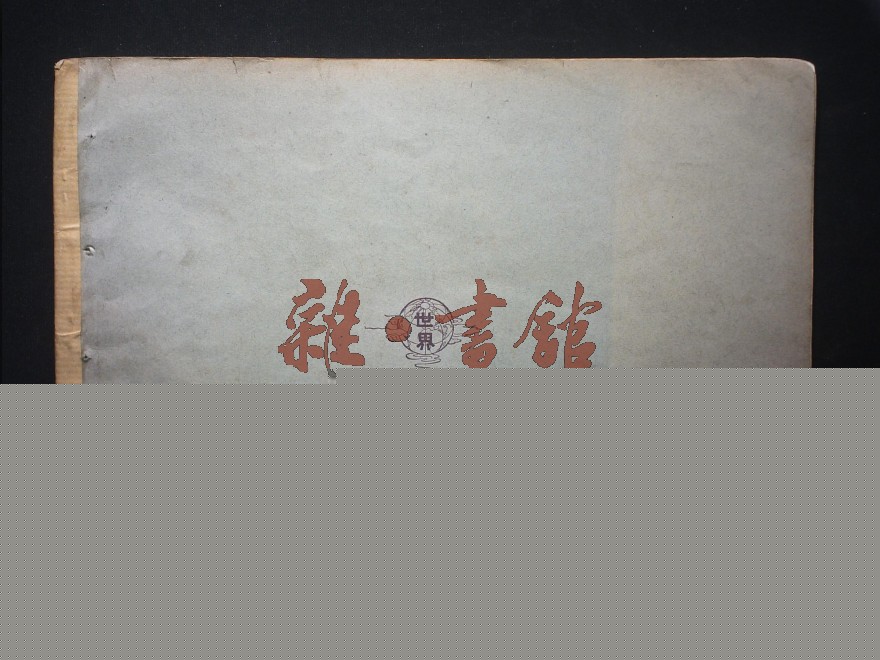 雜書館
世界